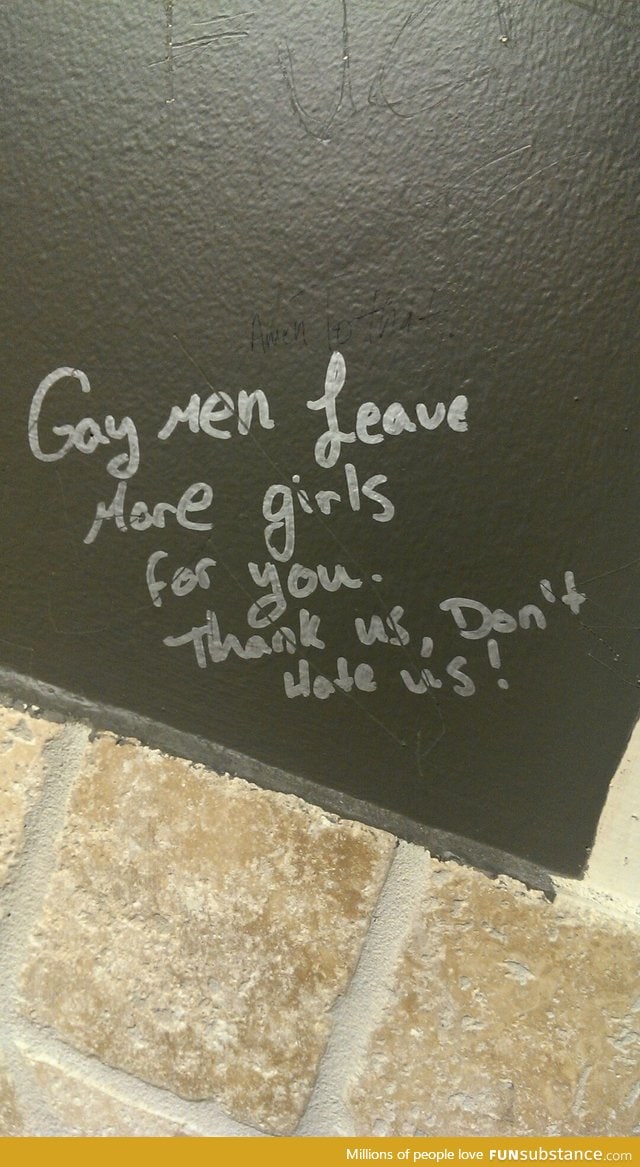 Amen to that.
Gay men Leave
More girls
for you.
Thank us, Don't
Hate us!
Millions of people love FUNsubstance.com